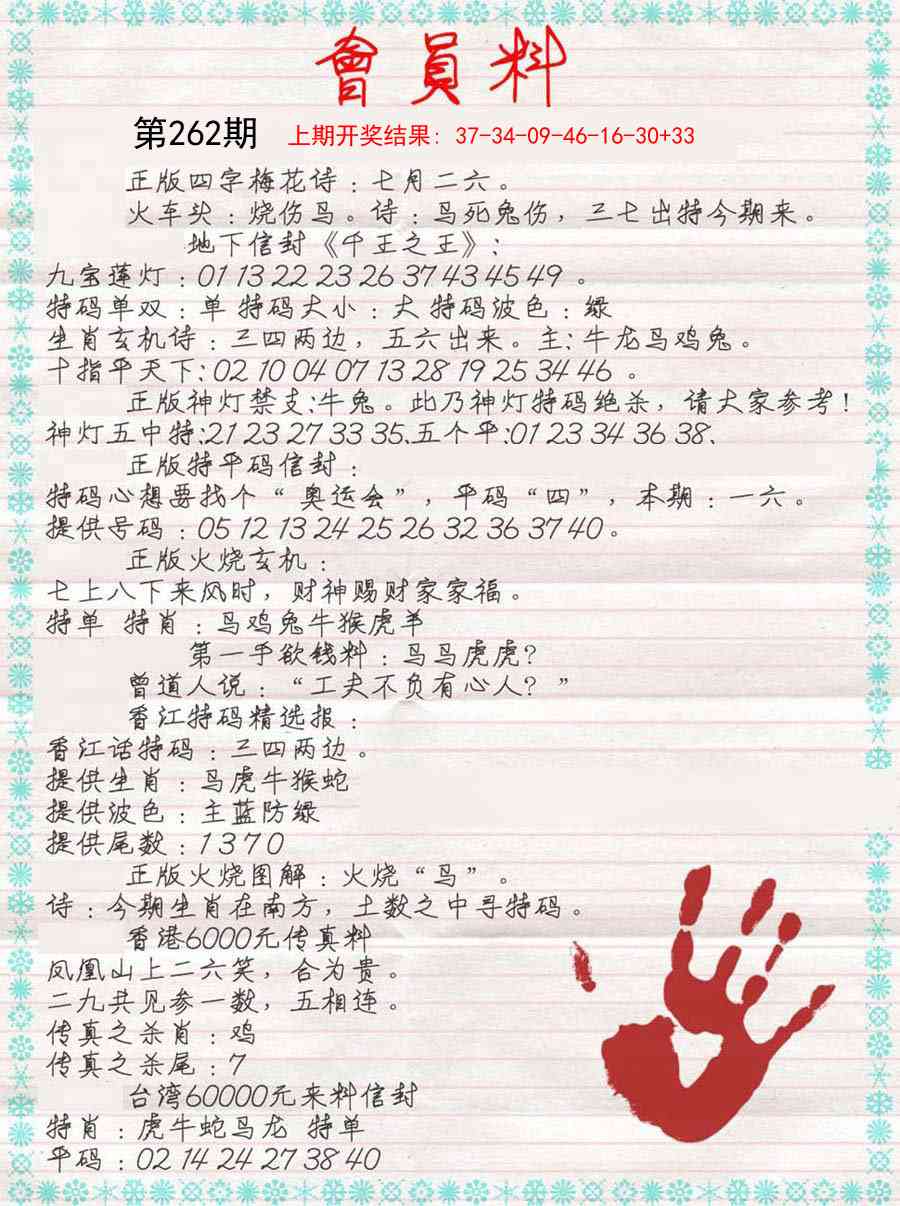 會員料
第262期 上期开奖结果：37-34-09-46-16-30+33
正版四字梅花诗：七月二六。
火车头：烧伤鸟。诗：鸟死兔伤，三七出特今期来。
地下信封《千王之王》：
九宝莲灯：01 13 22 23 26 37 43 45 49 。
特码单双：单 特码大小：大 特码波色：绿
生肖玄机诗：三四两边，五六出来。主：牛龙马鸡兔。
十指平天下：02 10 04 07 13 28 19 25 34 46 。
正版神灯禁支：牛兔。此乃神灯特码绝杀，请大家参考！
神灯五中特：21 23 27 33 35、五个平：01 23 34 36 38、
正版特平码信封：
特码心想要找个“ 奥运会”，平码“四”，本期：一六。
提供号码：05 12 13 24 25 26 32 36 37 40。
正版火烧玄机：
七上八下来风时，财神赐财家家福。
特单 特肖：马鸡兔牛猴虎羊
第一手欲钱料：马马虎虎？
曾道人说：“工夫不负有心人？”
香江特码精选报：
香江话特码：三四两边。
提供生肖：马虎牛猴蛇
提供波色：主蓝防绿
提供尾数：1 3 7 0
正版火烧图解：火烧“鸟”。
诗：今期生肖在南方，土数之中寻特码。
香港6000元传真料
凤凰山上二六笑，合为贵。
二九共见参一数，五相连。
传真之杀肖：鸡
传真之杀尾：7
台湾60000元来料信封
特肖：虎牛蛇马龙 特单
平码：02 14 24 27 38 40